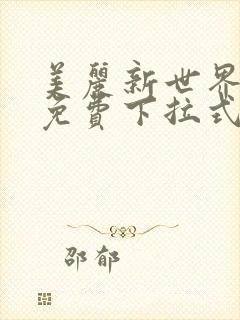 美麗新世界
免費下拉式
邵郁